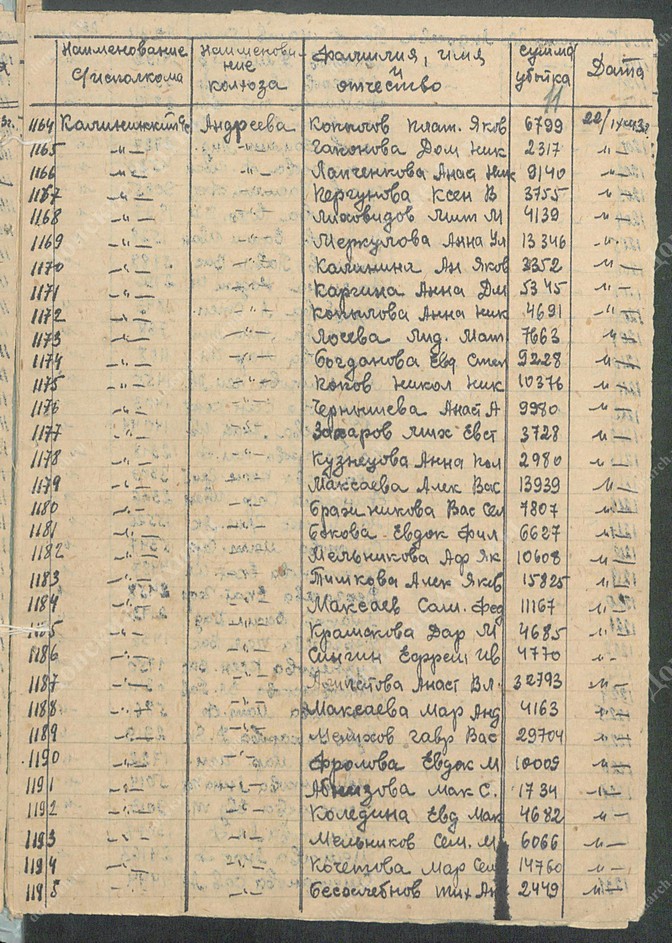 Наименование Наименование Фамилия, имя Сумма Дата
с/исполкома колхоза и отчество убытка
11
1164 Андреева Копылов Плат. Яков 6799
1165 -"- -"- Гапонова Дом Ник 2317 -"-
1166 -"- -"- Лапченкова Анас Ник 9140 -"-
1167 -"- -"- Кергунова Ксен В 3755 -"-
1168 -"- -"- Лиховидов Мит М 4139 -"-
1169 -"- -"- Меркулова Анна Ул 13346 -"-
1170 -"- -"- Калинина Ан Яков 3352 -"-
1171 -"- -"- Каргина Анна Дм 5345 -"-
1172 -"- -"- Копылова Анна Ник 4691 -"-
1173 -"- -"- Лосева Лид. Мат. 7663 -"-
1174 -"- -"- Богданова Евд Степ 9228 -"-
1175 -"- -"- Попов Никол Ник 10376 -"-
1176 -"- -"- Чернышева Анаст А 9980 -"-
1177 -"- -"- Захаров Мих Евст 3728 -"-
1178 -"- -"- Кузнецова Анна Пол 2980 -"-
1179 -"- -"- Максаева Алек Вас 13939 -"-
1180 -"- -"- Бражникова Вас Сем 7807 -"-
1181 -"- -"- Бокова Евдок Фил 6627 -"-
1182 -"- -"- Мельникова Аф Як 10608 -"-
1183 -"- -"- Тишкова Алек Яков 15825 -"-
1184 -"- -"- Максаев Сам. Фед 11167 -"-
1185 -"- -"- Дар М 4685 -"-
1186 -"- -"- Ефрем Ив 4770 -"-
1187 -"- -"- Анаст Вл. 32793 -"-
1188 -"- -"- Максаева Мар Анд 4163 -"-
1189 -"- -"- Мелихов Гавр Вас 29704 -"-
1190 -"- -"- Фролова Евдок М 10009 -"-
1191 -"- -"- Мак С. 1734 -"-
1192 -"- -"- Коледина Евд Мак 4682 -"-
1193 -"- -"- Мельников Сем. М 6066 -"-
1194 -"- -"- Кочетова Мар Сем 14760 -"-
1195 -"- -"- Тих Ан 2449 -"-